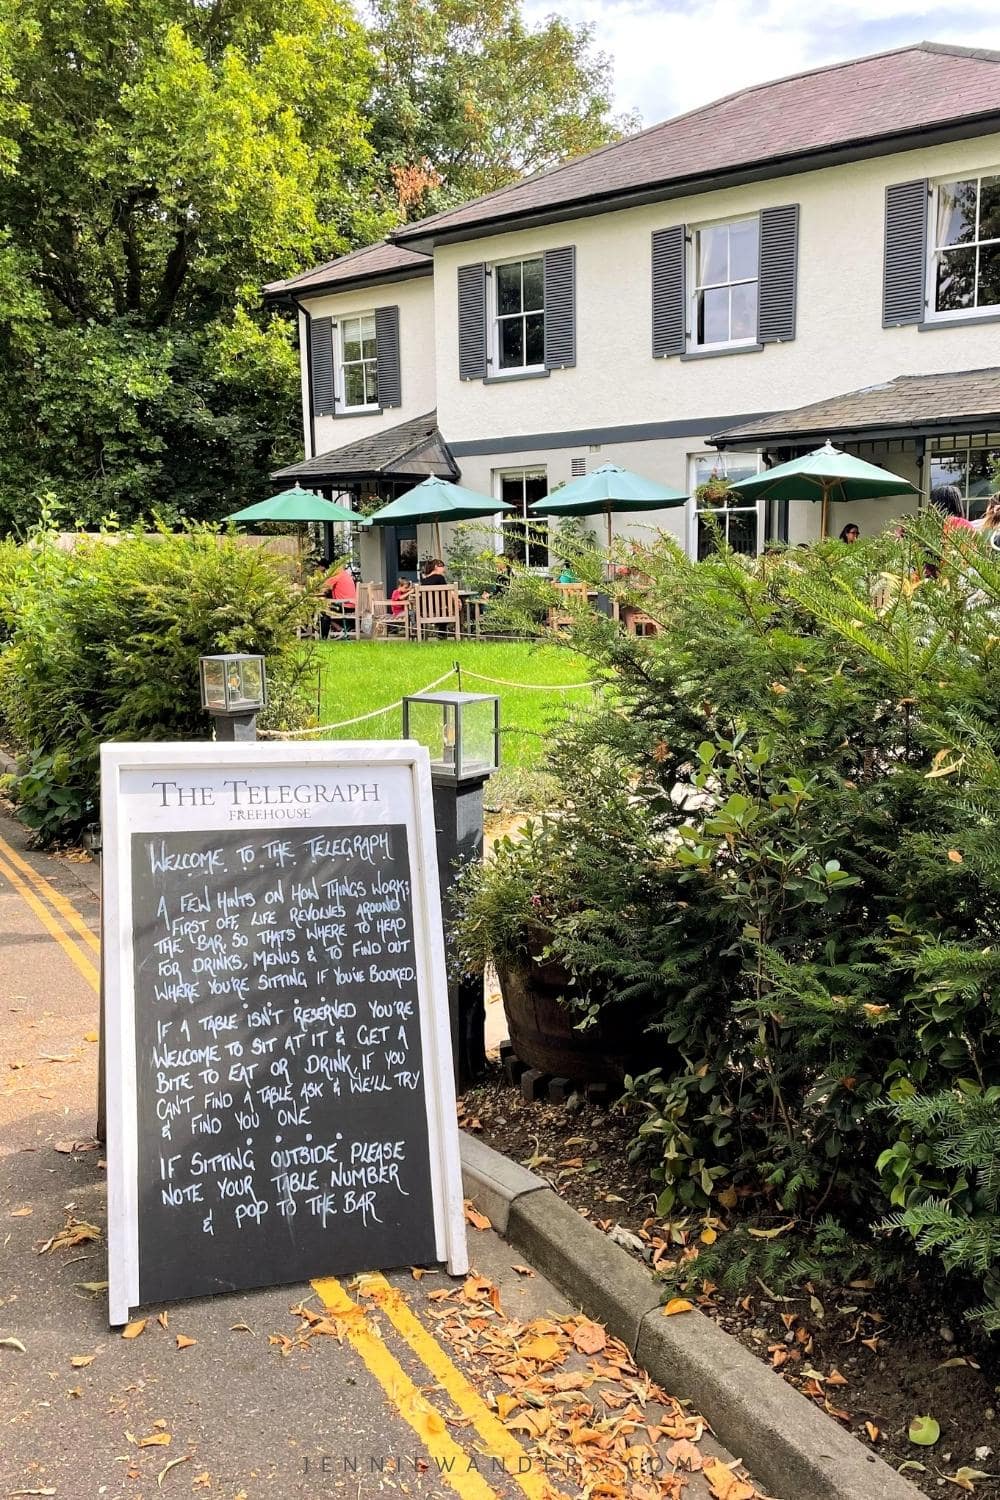 THE TELEGRAPH
FREEHOUSE
WELCOME TO THE TELEGRAPH
A FEW HINTS ON HOW THINGS WORK;
FIRST OFF, LIFE REVOLVES AROUND
THE BAR, SO THAT'S WHERE TO HEAD
FOR DRINKS, MENUS & TO FIND OUT
WHERE YOU'RE SITTING IF YOU'VE BOOKED.
IF A TABLE ISN'T RESERVED YOU'RE
WELCOME TO SIT AT IT & GET A
BITE TO EAT OR DRINK, IF YOU
CAN'T FIND A TABLE ASK & WE'LL TRY
& FIND YOU ONE
IF SITTING OUTSIDE PLEASE
NOTE YOUR TABLE NUMBER
& POP TO THE BAR
JENNIEWANDERS.COM